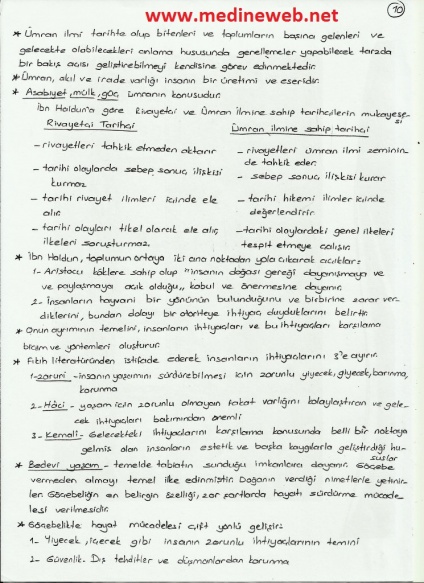 www.medineweb.net
10
* Ümran ilmi tarihte olup bitenleri ve toplumların başına gelenleri ve
gelecekte olabilecekleri anlama hususunda genellemeler yapabilecek tarzda
bir bakış açısı geliştirebilmeyi kendisine görev edinmektedir.
* Ümran, akıl ve irade varlığı insanın bir üretimi ve eseridir.
* Asabiyet, mülk, göç, ümranın konusudur.
İbn Haldun'a göre Rivayetçi ve Ümran İlmine sahip tarihçilerin mukayesesi
Rivayetçi Tarihçi
Ümran ilmine sahip tarihçi
- rivayetleri tahkik etmeden aktarır
- rivayetleri ümran ilmi zemininde tahkik eder.
- tarihi olaylarda sebep sonuç ilişkisi
kurmaz
- sebep sonuç ilişkisi kurar
- tarihi rivayet ilimleri içinde ele
alır.
- tarihi hikemi ilimler içinde
değerlendirir
- tarihi olayları tikel olarak ele alıp
ilkeleri soruşturmaz
- tarihi olaylardaki genel ilkeleri
tespit etmeye çalışır.
* İbn Haldun, toplumun ortaya iki ana noktadan yola çıkarak açıklar:
1- Aristocu köklere sahip olup "insanın doğası gereği dayanışmaya ve
ve paylaşmaya açık olduğu,, kabul ve önermesine dayanır.
2- İnsanların hayvani bir yönünün bulunduğunu ve birbirine zarar ver-
diklerini, bundan dolayı bir otoriteye ihtiyaç duyduklarını belirtir.
* Onun ayırımının temelini, insanların ihtiyaçları ve bu ihtiyaçları karşılama
biçim ve yöntemleri oluşturur.
* Fıkıh literatüründen istifade ederek insanların ihtiyaçlarını 3'e ayırır.
1-zaruri - insanın yaşamını sürdürebilmesi için zorunlu yiyecek, giyecek, barınma,
korunma
2- Hâci - yaşam için zorunlu olmayan fakat varlığını kolaylaştıran ve gele-
cek ihtiyaçları bakımından önemli
3- Kemali - Gelecekteki ihtiyaçlarını karşılama konusunda belli bir noktaya
gelmiş olan insanların estetik ve başka kaygılarla geliştirdiği hususlar
* Bedevi yaşam - temelde tabiatın sunduğu imkanlara dayanır. Göçebe
vermeden almayı temel ilke edinmiştir. Doğanın verdiği nimetlerle yetinir-
ler. Göçebeliğin en belirgin özelliği, zor şartlarda hayatı sürdürme mücade-
lesi verilmesidir.
* Göçebelikte hayat mücadelesi çift yönlü gelişir:
1- Yiyecek, içecek gibi insanın zorunlu ihtiyaçlarının temini
2- Güvenlik. Dış tehditler ve düşmanlardan korunma